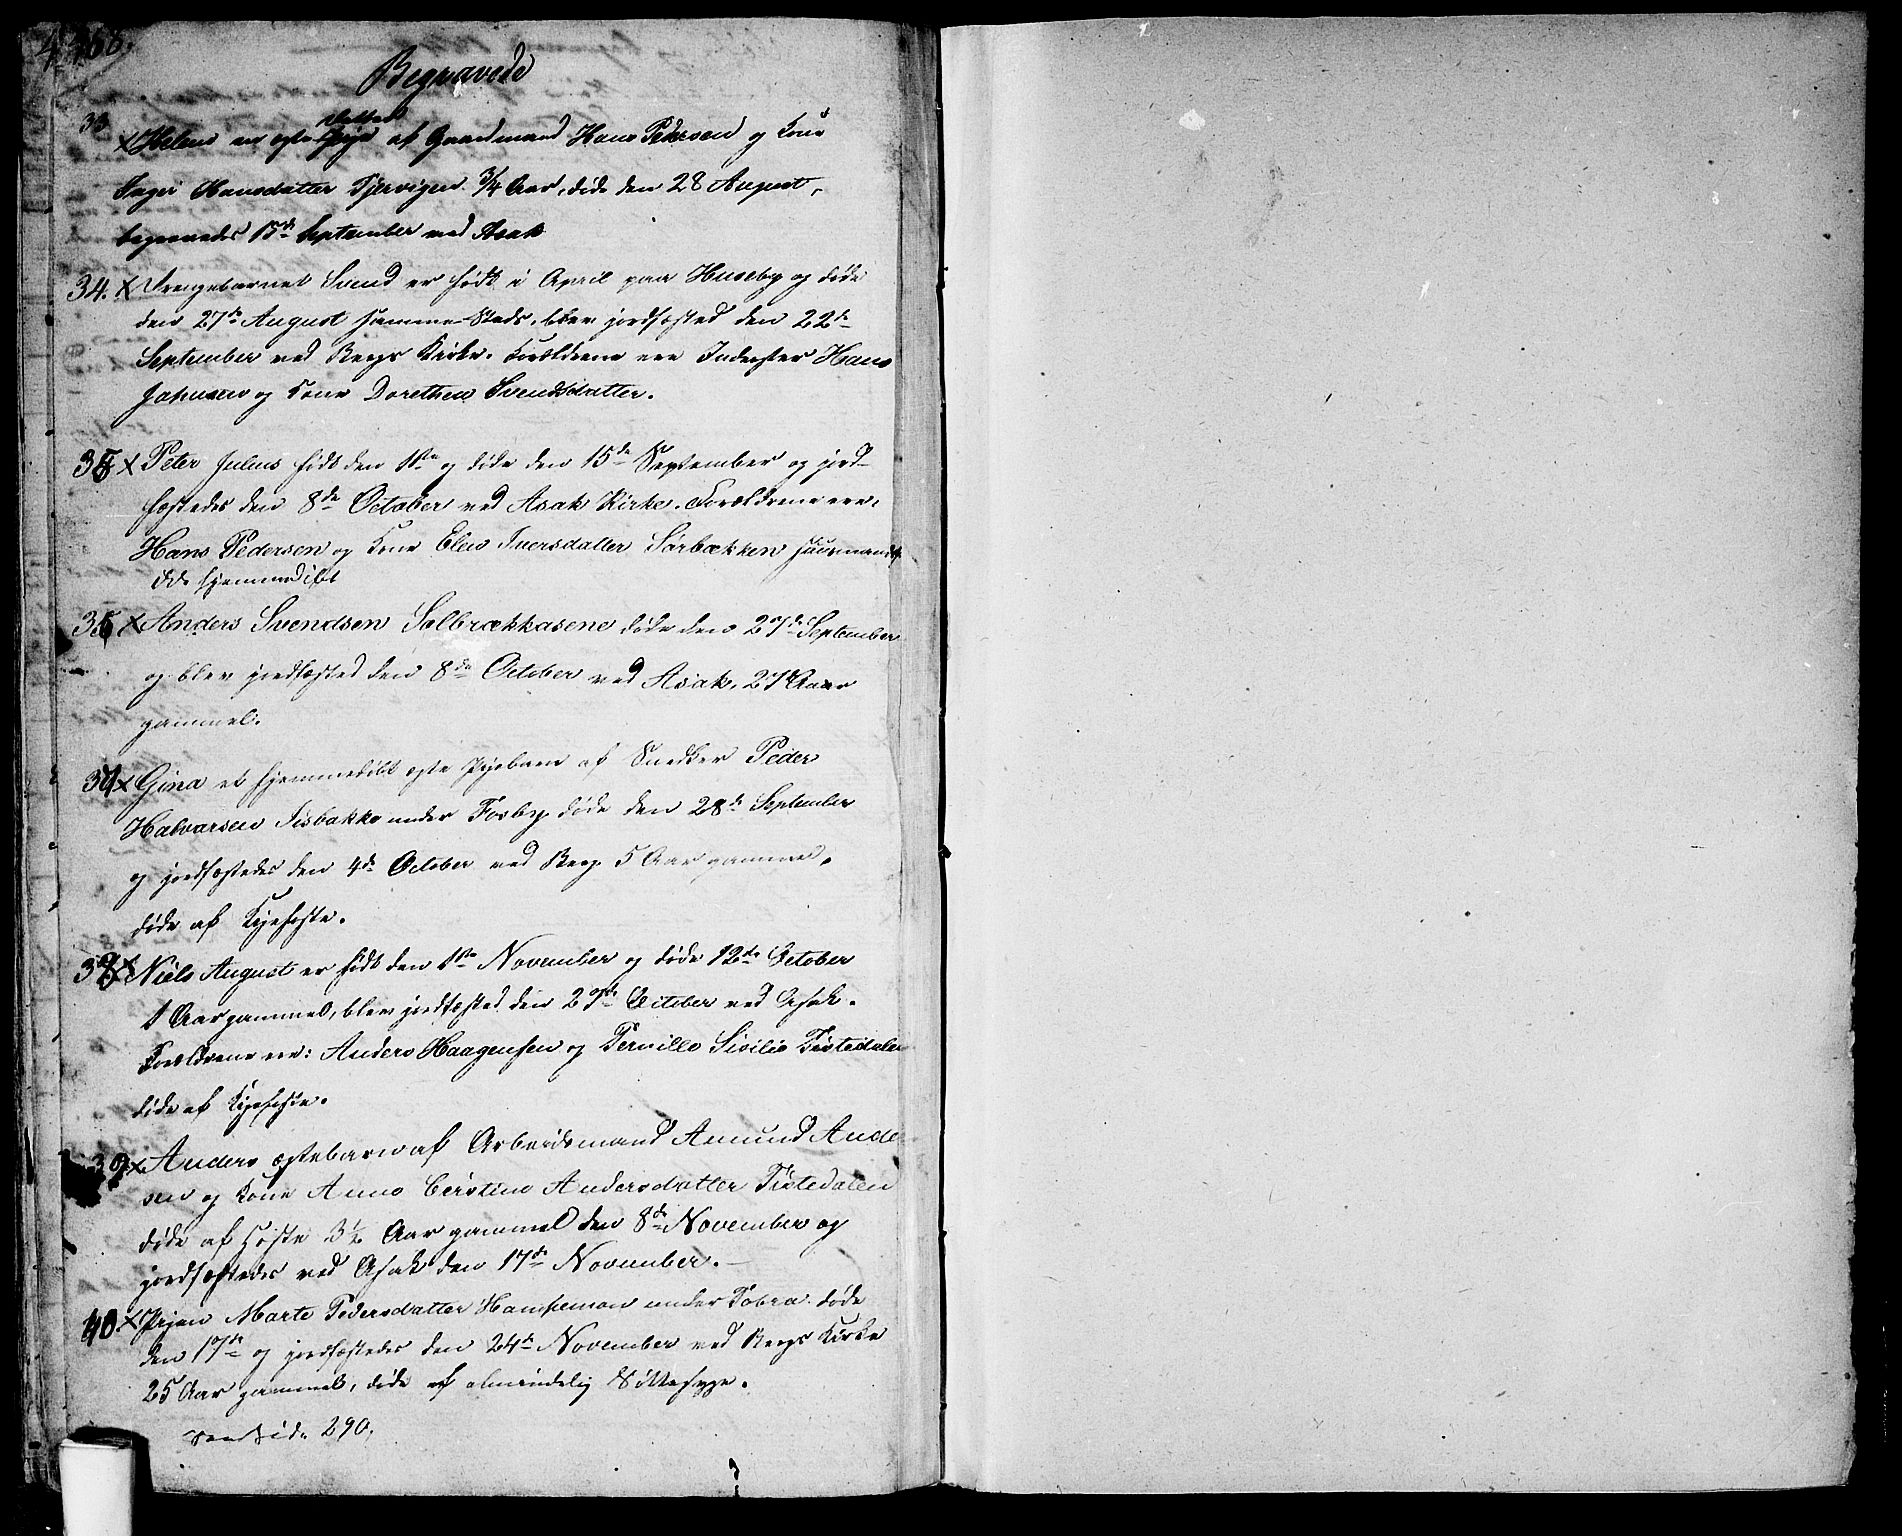 468.
Begravede
33
Datter
x Helene en egte Pige af Gaardmand Hans Pedersen og Kone
Inger Hansdatter Tjervigen 3/4 Aar, døde den 28 August,
begravedes 15de September ved Asak
34. x Drengebarnet Svend er født i April paa Huseby og døde
den 27de August samme Steds, blev jordfæsted den 22de
September ved Bergs Kirke. Forældrene ere Inderster Hans
Johnsen og Kone Dorethea Svendsdatter.
35 x Peter Julius født den 1ste og døde den 15de September og jord-
fæstedes den 8de October ved Asak Kirke. Forældrene ere,
Hans Pedersen og Kone Elen Iversdatter Sørbækken
ikke hjemmedøbt
36 x Anders Svendsen Solbrækkasene døde den 27de September
og blev jordfæsted den 8de October ved Asak, 27 Aar
gammel.
37 x Gina et hjemmedøbt egte Pigebarn af Snedker Peder
Halvorsen Iisbakke under Fosby døde den 28de September
og jordfæstedes den 4de October ved Berg 5 Aar gammel,
døde af Kighoste.
38 x Niels August er født den 1ste November og døde 12de October
1 Aar gammel, blev jordfæsted den 27de October ved Asak.
Forældrene ere: Anders Haagensen og Pernille Sisilie Tistedalen
døde af Kighoste.
39 x Anders ægtebarn af Arbeidsmand Amund Ander
sen og Kone Anne Cerstine Andersdatter Tistedalen
døde af Hoste 3½ Aar gammel den 8de November og
jordfæstedes ved Asak den 17de November.
40. x Pigen Marte Pedersdatter Hansemon under Torra døde
den 17de og jordfæstedes den 24de November ved Bergs Kirke
25 Aar gammel, døde af almindelig Sottesyge.
vend Side 290,